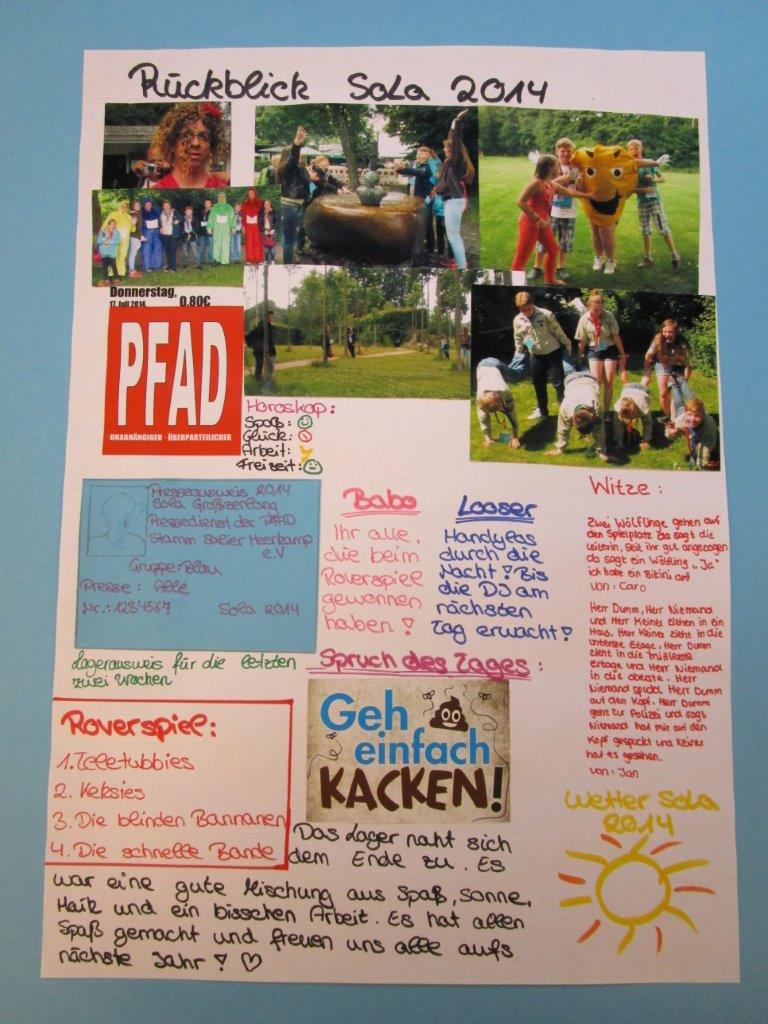 Rückblick SoLa 2014
Donnerstag,
17. Juli 2014. 0,80€
PFAD
UNABHÄNGIGER · ÜBERPARTEILICHER
Horoskop:
Spaß:
Glück:
Arbeit:
Freizeit:
Presseausweis 2014
Sola Großzerlang
Pressedienst der PFAD
Stamm Salier Heerkamp
e.V
Gruppe: Blau
Presse: Alle
Nr.: 1234567 Sola 2014
Lagerausweis für die letzten
zwei Wochen
Babo
Ihr alle,
die beim
Roverspiel
gewonnen
haben!
Looser
Handylos
durch die
Nacht! Bis
die DJ am
nächsten
Tag erwacht!
Witze:
Zwei Wölflinge gehen auf
den Spielplatz da sagt die
Leiterin, seit ihr gut angezogen
da sagt ein Wölfling „Ja"
ich habe ein Bikini an!
von: Caro
Herr Dumm, Herr Niemand
und Herr Keiner ziehen in ein
Haus. Herr Keiner zieht in die
unterste Etage, Herr Dumm
zieht in die mittlerste
Ertage und Herr Niemand
in die oberste. Herr
Niemand spuckt Herr Dumm
auf den Kopf. Herr Dumm
geht zur Polizei und sagt
Niemand hat mir auf den
Kopf gespuckt und Keiner
hat es gesehen.
von: Jan
Spruch des Tages:
Geh
einfach
KACKEN!
Roverspiel:
1. Teletubbies
2. Keksies
3. Die blinden Bannanen
4. Die schnelle Bande
Wetter Sola
2014
Das Lager naht sich
dem Ende zu. Es
war eine gute Mischung aus Spaß, Sonne,
Haik und ein bisschen Arbeit. Es hat allen
Spaß gemacht und freuen uns alle aufs
nächste Jahr! ♡